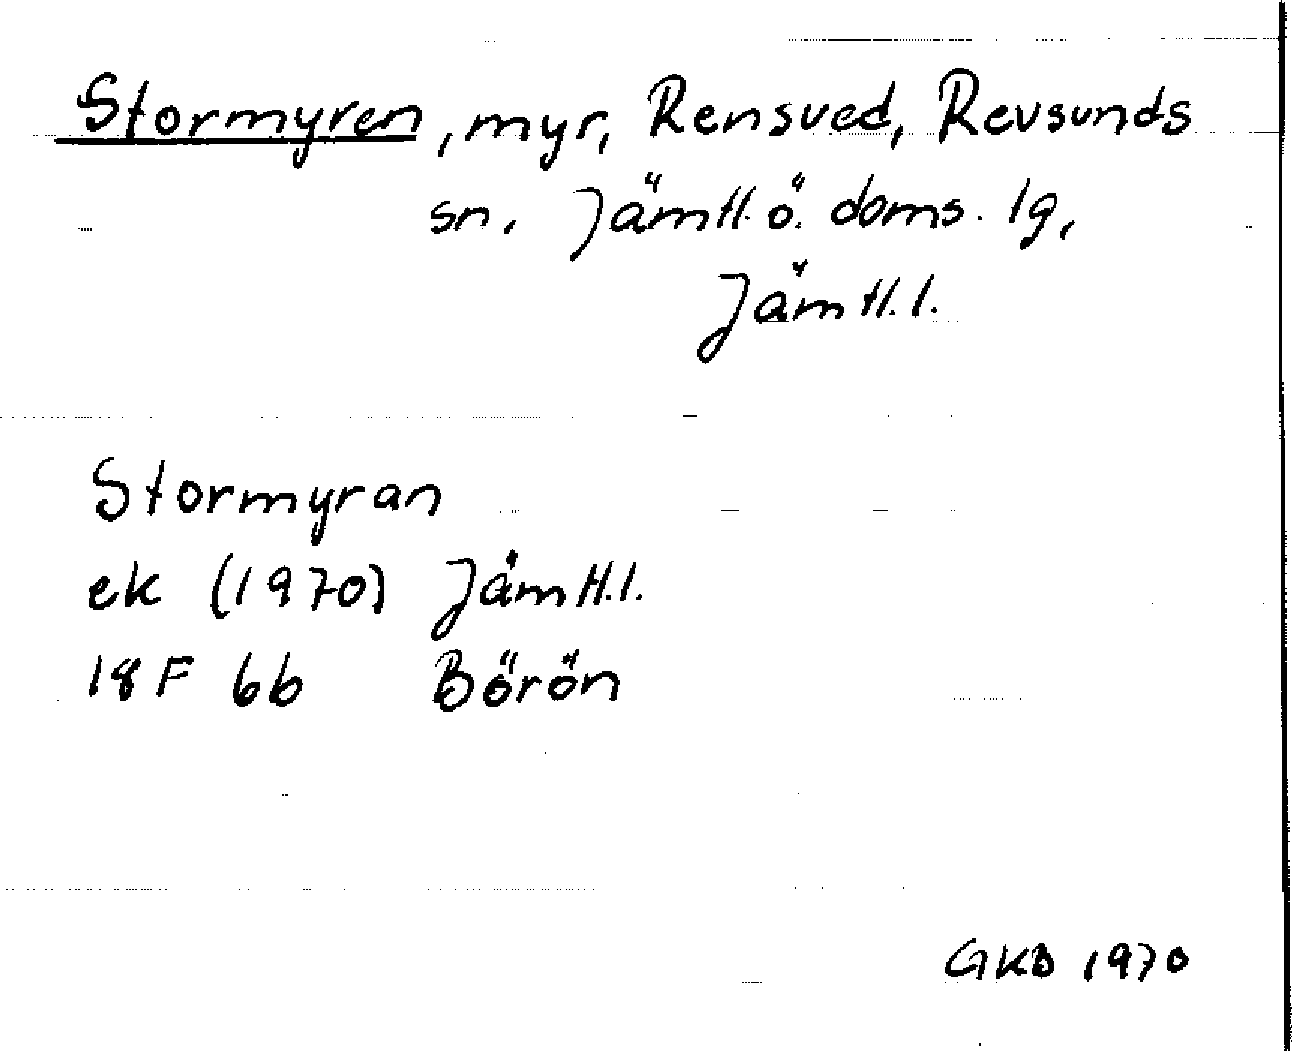 Stormyren, myr, Rensved, Revsunds
sn. Jämtl. ö. doms. lg,
Jämtl. l.
Stormyran
ek (1970) Jämtl. l.
18 F 6b Börön
GKB 1970